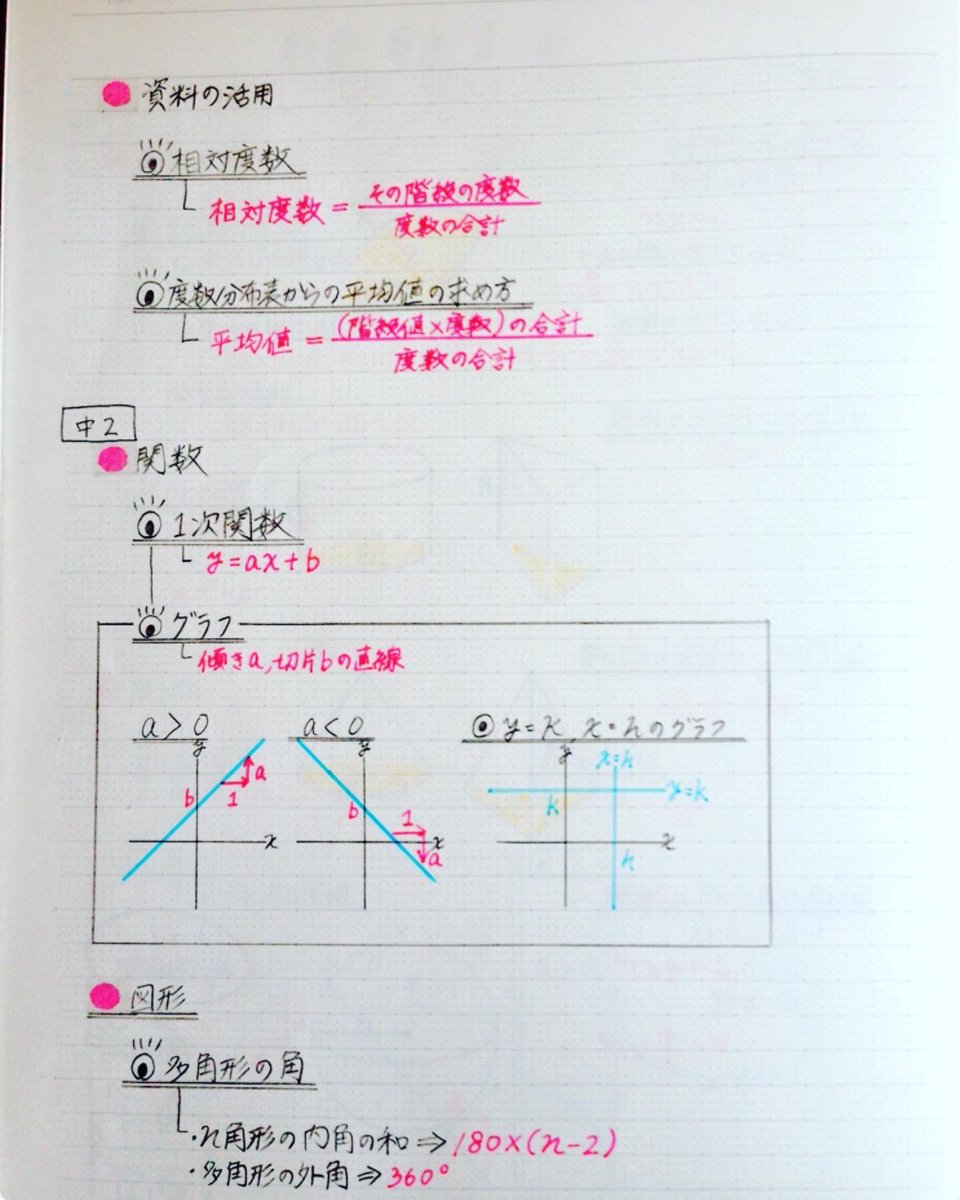 資料の活用
相対度数
相対度数 = その階級の度数 / 度数の合計
度数分布表からの平均値の求め方
平均値 = (階級値×度数)の合計 / 度数の合計
中2
関数
1次関数
y=ax+b
グラフ
傾きa,切片bの直線
a>0
y
b
1
a
x
a<0
y
b
1
a
x
y=k, x=hのグラフ
y
x=h
k
y=k
x
h
図形
多角形の角
・n角形の内角の和⇒180×(n-2)
・多角形の外角⇒360°